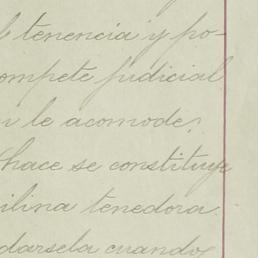 tenencia y po-
ompete judicial
le acomode.
hace se constituye
ilina tenedora
darsela cuando